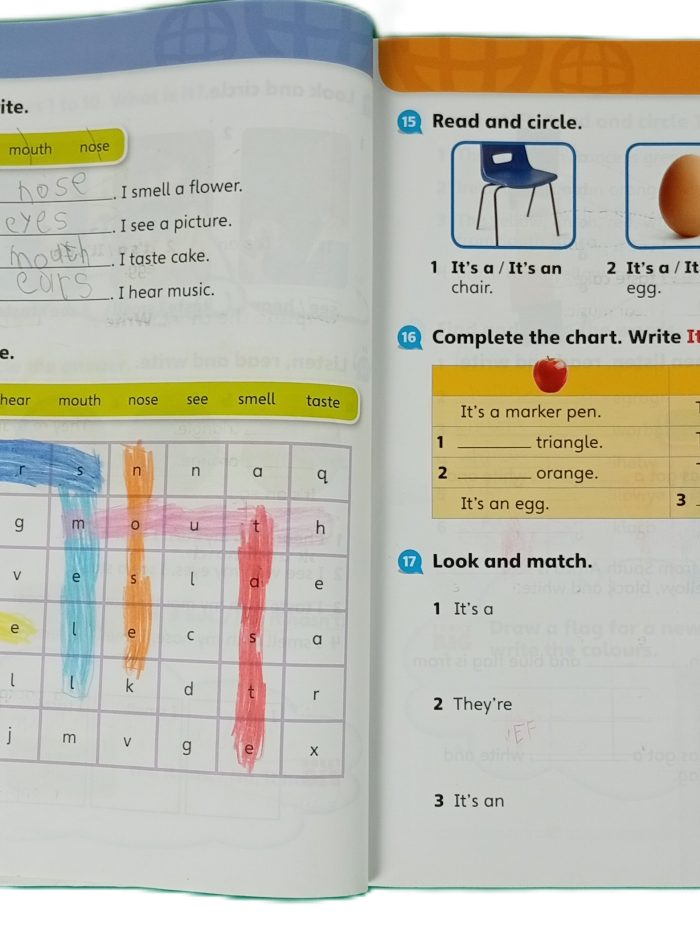 ite.
mouth nose
nose . I smell a flower.
eyes . I see a picture.
mouth . I taste cake.
ears . I hear music.
e.
hear mouth nose see smell taste
r s n n a q
g m o u t h
v e s l a e
e l e c s a
l l k d t r
j m v g e x
15 Read and circle.
1 It's a / It's an
chair.
2 It's a / It
egg.
16 Complete the chart. Write It
It's a marker pen.
1 ________ triangle.
2 ________ orange.
It's an egg.
3
17 Look and match.
1 It's a
2 They're
3 It's an